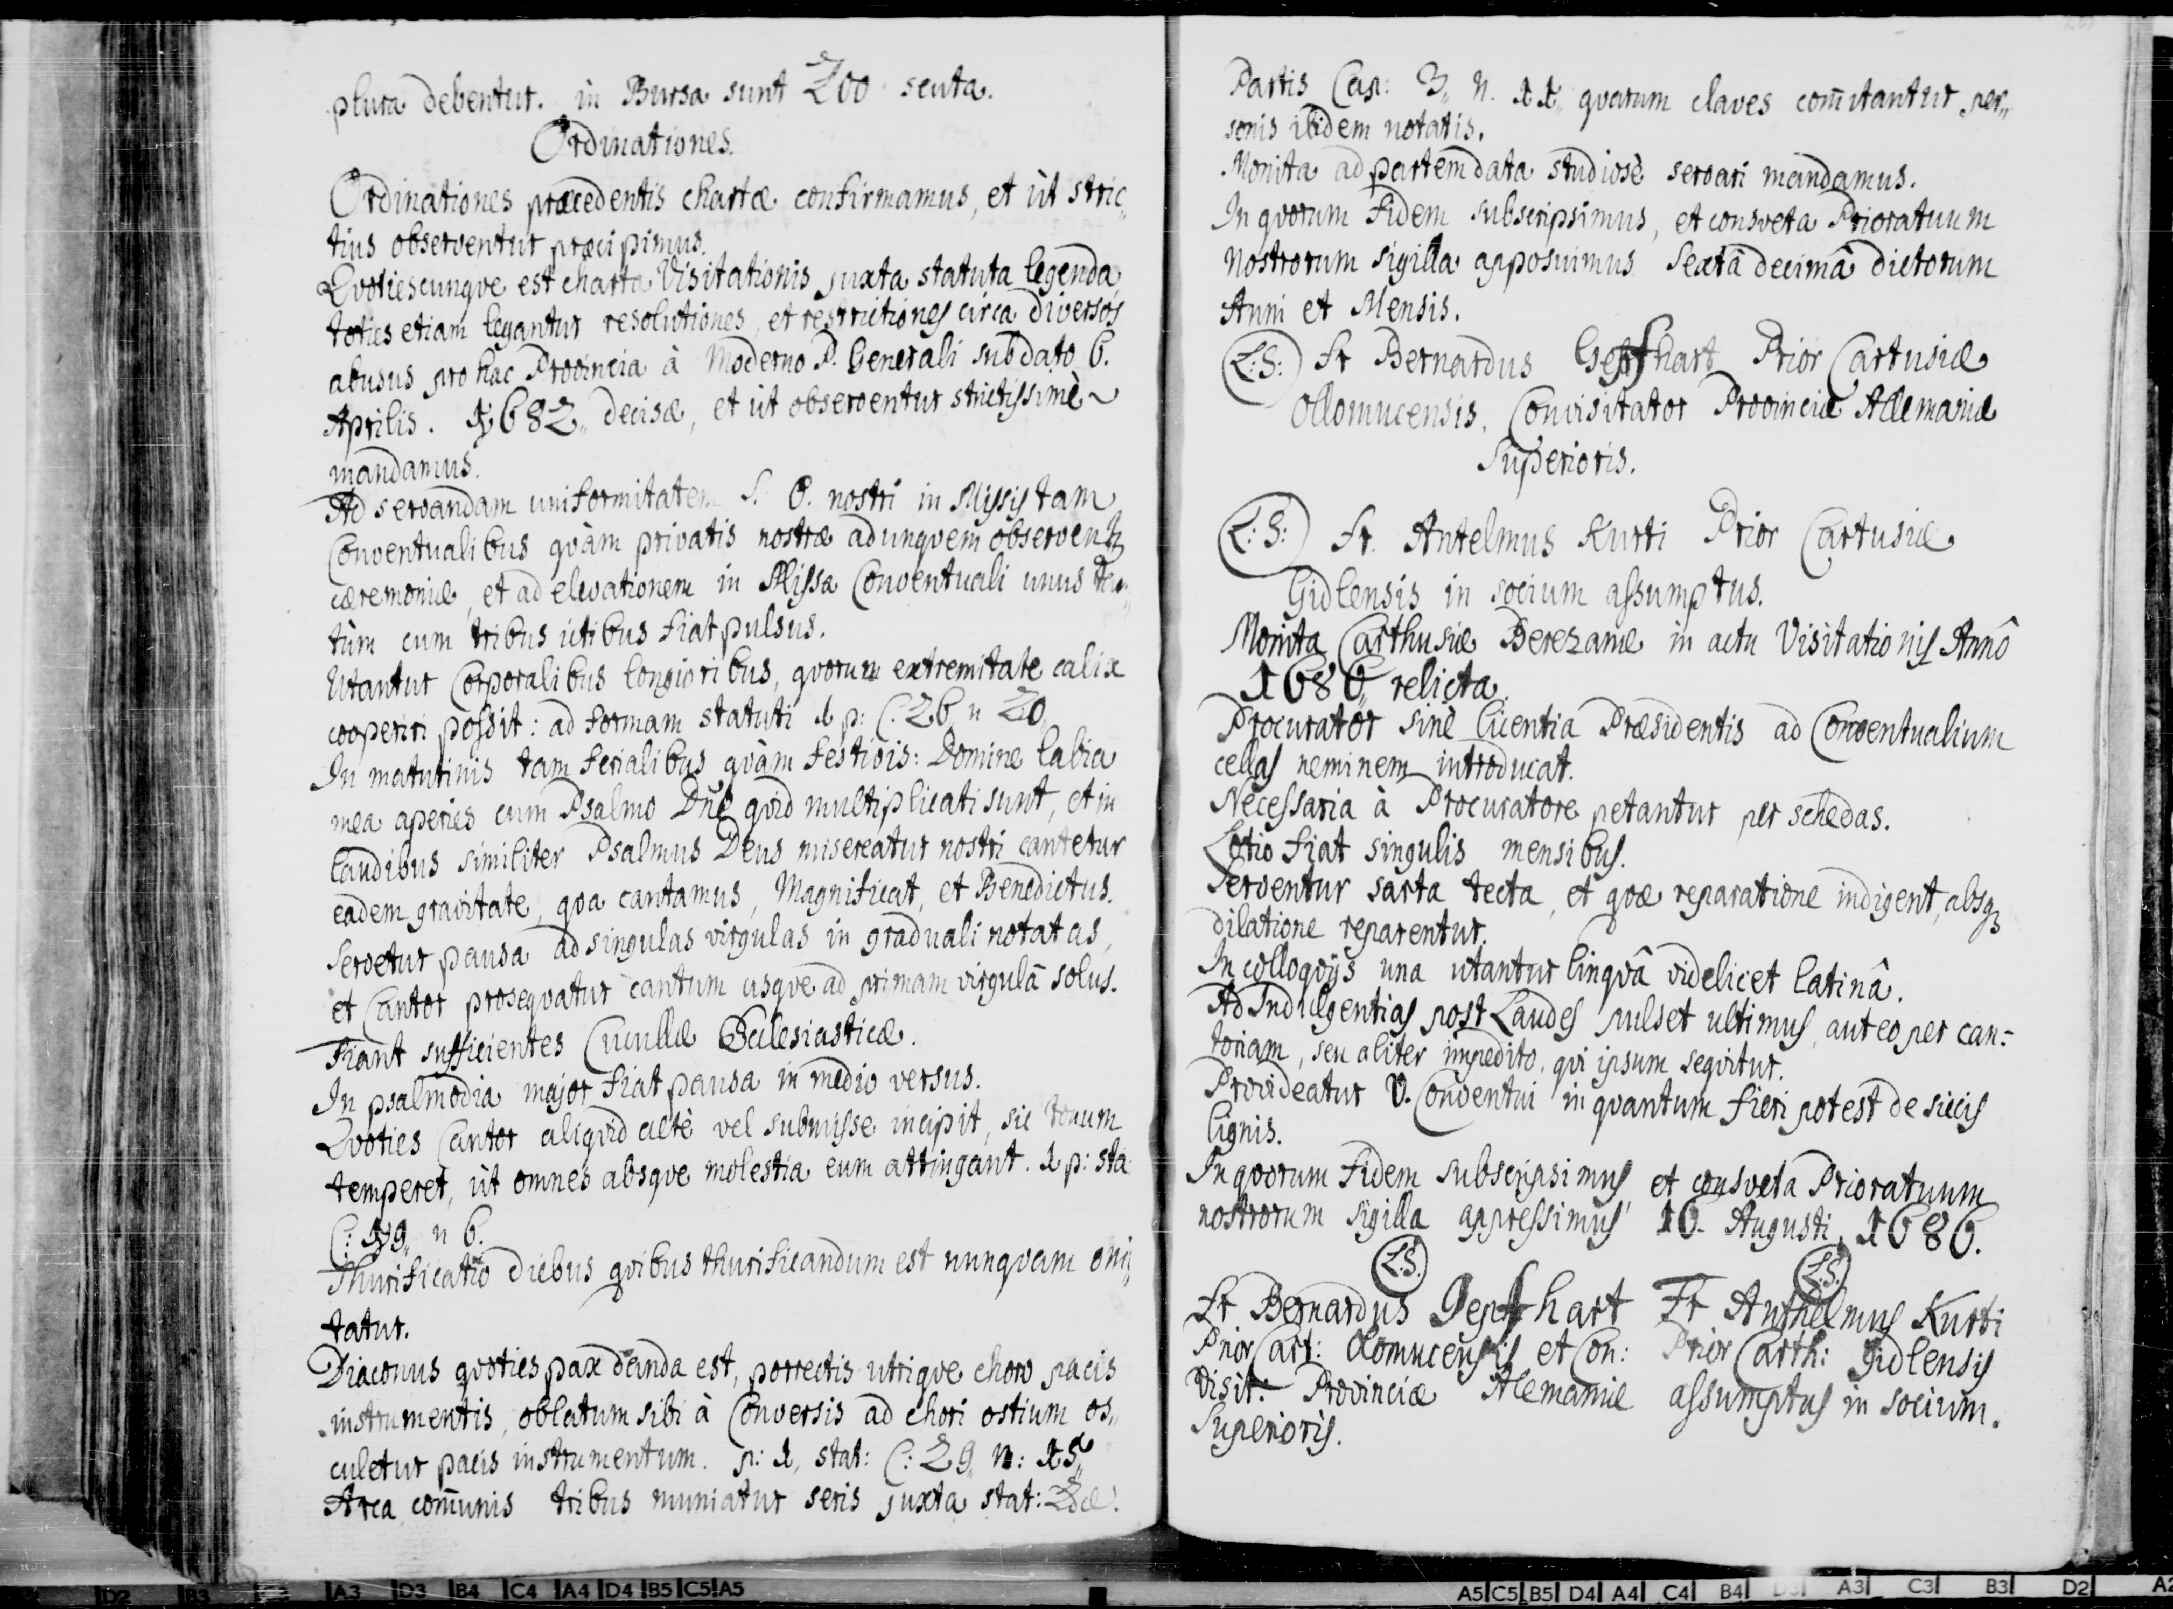 plura debentur. in Bursa sunt 200 scuta.
Ordinationes.
Ordinationes præcedentis chartæ confirmamus, et ùt stric„
tius observentur præcipimus.
Quotiescunque est charta Visitationis juxta statuta legenda
toties etiam legantur resolutiones, et restrictiones circa diversos
abusus pro hac Provincia à Moderno P. Generali sub dato 6.
Aprilis. 1682„ decisæ, et ùt observentur strictissimè
mandamus.
Ad servandam uniformitatem S. O. nostri in Missis tam
Conventualibus quàm privatis nostræ ad unquem observentꝫ
cæremoniæ, et ad elevationem in Missa Conventuali unus tan„
tùm cum tribus ictibus fiat pulsus.
Utantur Corporalibus longioribus, quorum extremitate calix
cooperiri possit: ad formam statuti 1 p: C: 26 n 20
In matutinis tam ferialibus quàm festivis: Domine labia
mea aperies cum Psalmo Dñe quid multiplicati sunt, et in
laudibus similiter Psalmus Deus misereatur nostri cantetur
eadem gravitate, qua cantamus, Magnificat, et Benedictus.
Servetur pausa ad singulas virgulas in graduali notatas,
et Cantor prosequatur cantum usque ad primam virgulā solus.
Fiant sufficientes Cucullæ Ecclesiasticæ.
In psalmodia major fiat pausa in medio versus.
Quoties Cantor aliquid altè vel submisse incipit, sic tonum
temperet, ùt omnes absque molestia eum attingant. 1 p: sta
C: 19„ n 6.
Thurificatio diebus quibus thurificandum est nunquam omi„
tatur.
Diaconus quoties pax danda est, porrectis utrique choro pacis
instrumentis, oblatum sibi à Conversis ad chori ostium os„
culetur pacis instrumentum. p: 1, stat: C: 29„ n: 15„
Arca com̄unis tribus muniatur seris juxta stat: 2dæ.
Partis Cap: 3„ n. 11„ quarum claves com̄itantur per„
sonis ibidem notatis.
Monita ad partem data studiosè servari mandamus.
In quorum fidem subscripsimus, et consveta Prioratuum
nostrorum sigilla apposuimus Sextâ decimâ dictorum
Anni et Mensis.
L:S: Fr Bernardus Gepfhart Prior Cartusiæ
Ollomucensis, Convisitator Provinciæ Allemaniæ
Superioris.
L:S: Fr. Antelmus Kurti Prior Cartusiæ
Gidlensis in socium assumptus.
Monita Carthusiæ Berezanæ in actu Visitationis Annô
1686„ relicta.
Procurator sinè licentia Præsidentis ad Conventualium
cellas neminem introducat.
Necessaria à Procuratore petantur per schedas.
Lotio fiat singulis mensibus.
Serventur sarta tecta, et quæ reparatione indigent, absqꝫ
dilatione reparentur.
In colloquijs una utantur linquâ videlicet latinâ.
Ad Indulgentias post Laudes pulset ultimus, aut eo per can-
toriam, seu aliter impedito, qui ipsum sequitur.
Provideatur V. Conventui in quantum fieri potest de siccis
lignis.
In quorum fidem subscripsimus et consveta Prioratuum
nostrorum sigilla appressimus 16. Augusti, 1686.
L.S. L.S.
Fr Bernardus Gepfhart Fr Anthelmus Kurti
Prior Cart: Olomucensis et Con: Prior Carth: Gidlensis
Visit: Provinciæ Alemaniæ assumptus in socium.
Superioris.
A3 D3 B4 C4 A4 D4 B5 C5 A5 A5 C5 B5 D4 A4 C4 B4 D3 A3 C3 B3 D2 A2